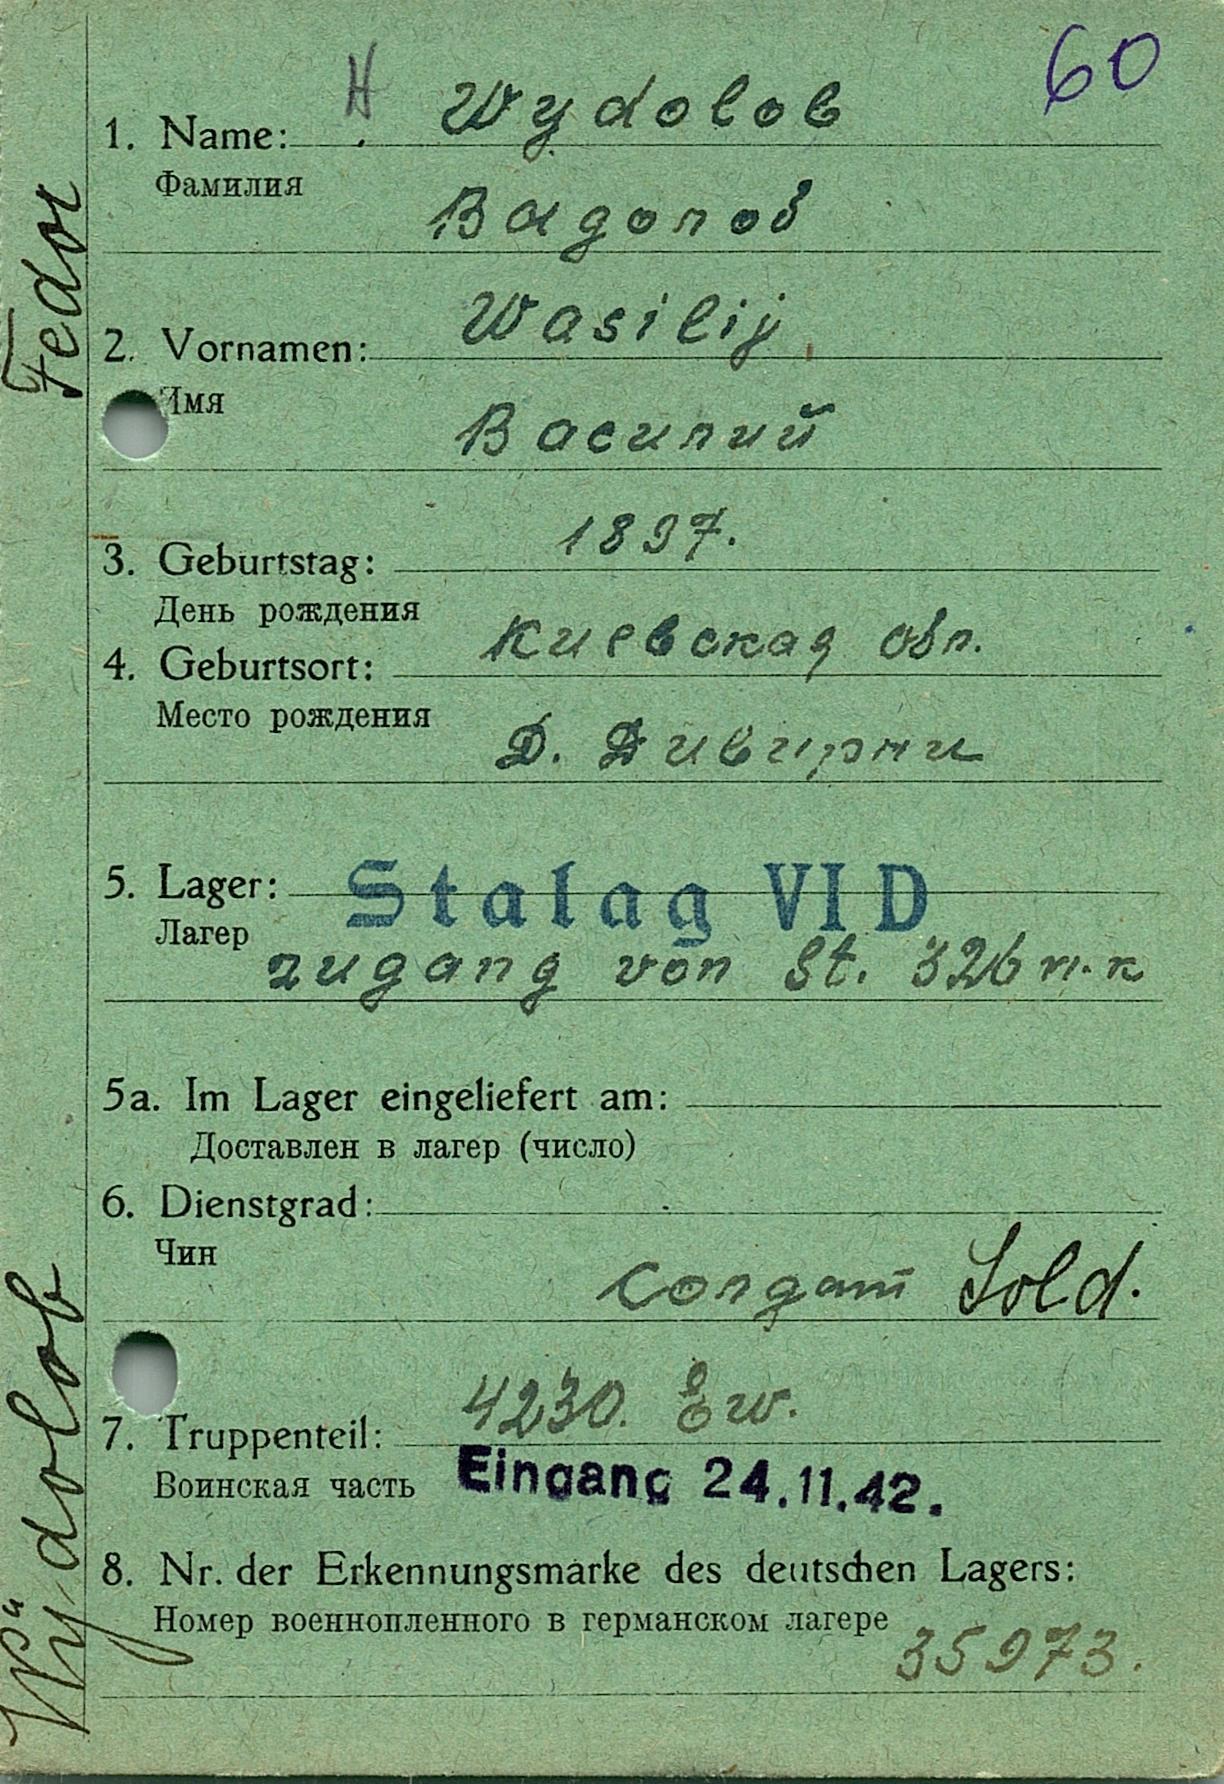 60
H
1. Name: Wydolob
Фамилия
Вадолов
2. Vornamen: Wasilij
Имя
Василий
3. Geburtstag: 1897.
День рождения
4. Geburtsort: Киевская обл.
Место рождения
Д.
5. Lager: Stalag VI D
Лагер
zugang von St. 326
5a. Im Lager eingeliefert am:
Доставлен в лагер (число)
6. Dienstgrad:
Чин
солдат Sold.
7. Truppenteil: 4230. Ew.
Воинская часть Eingang 24.11.42.
8. Nr. der Erkennungsmarke des deutschen Lagers:
Номер военнопленного в германском лагере 35973.
Wydolob Fedor